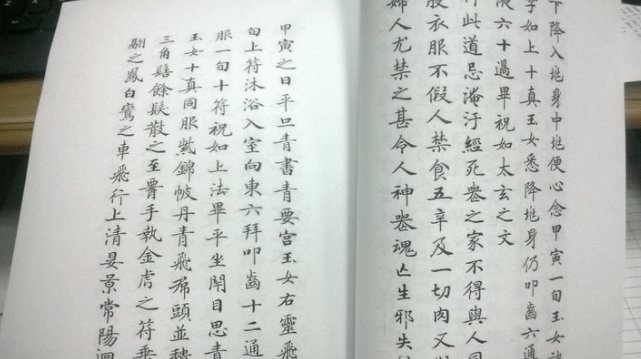 下降入兆身中兆便心念甲寅一旬玉女
字如上十真玉女悉降兆身仍叩齒六通
液六十過畢祝如太玄之文
行此道忌淹汙經死喪之家不得與人
服衣服不假人禁食五辛及一切肉又
婦人尤禁之甚令人神喪魂亡生邪失
甲寅之日平旦青書青要宮玉女右靈飛
旬上符沐浴入室向東六拜叩齒十二通
服一旬十符祝如上法畢平坐閉目思青
玉女十真同服紫錦帔丹青飛裙頭並穨
三角髻餘髮散之至腰手執金虎之符乘
翮之鳳白鸞之車飛行上清晏景常陽迴